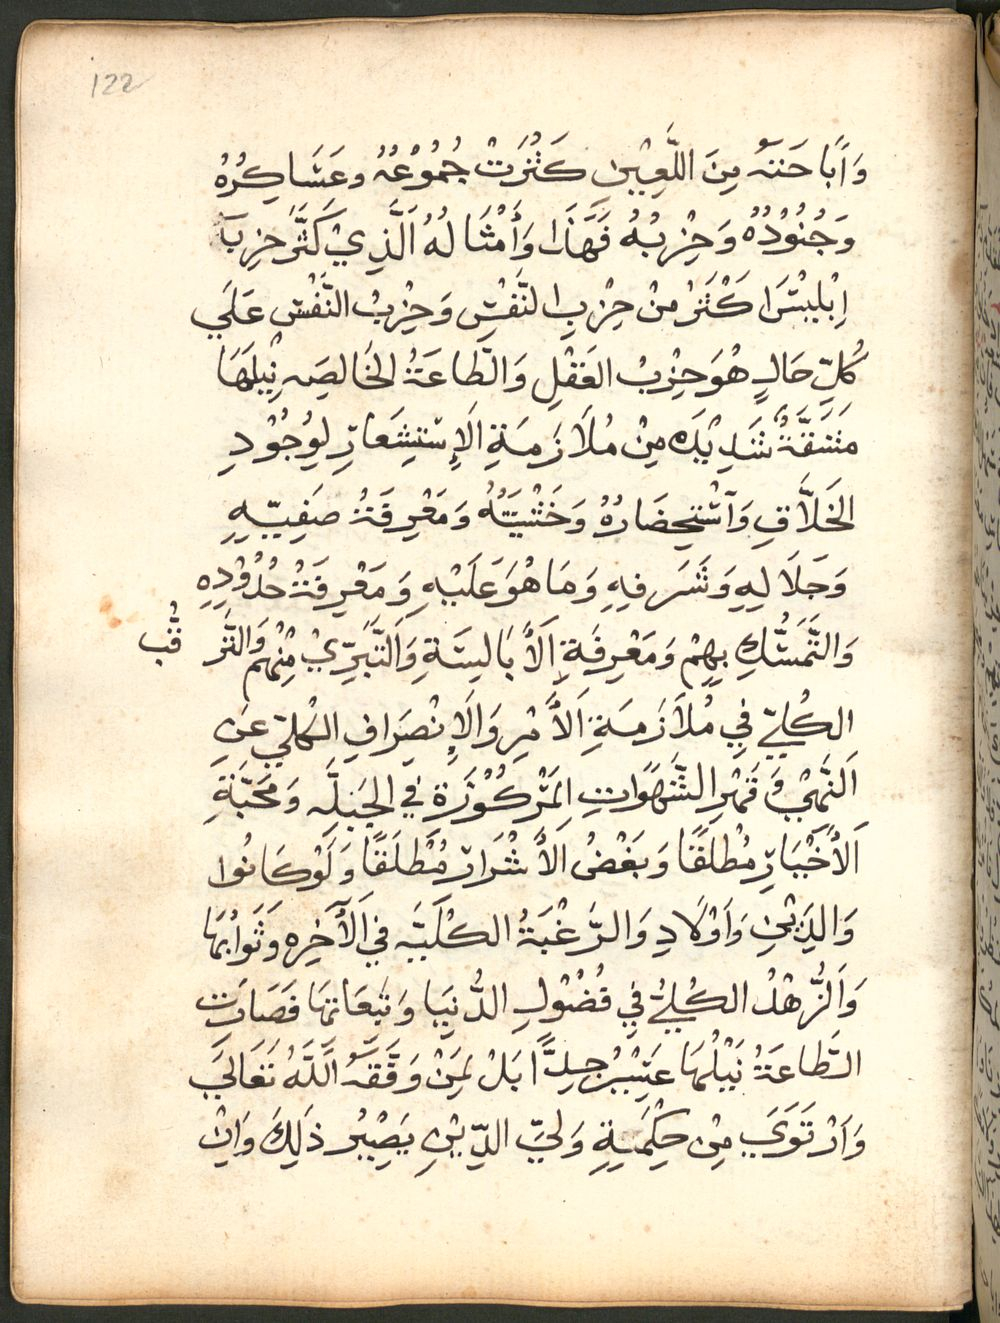 122
وَاَبَاحَتَهُ مِنَ اللَّعِيْنِ كَثُرَتْ جُمُوْعُهُ وعَسَاكِرُهُ
وَجُنُوْدُهُ وَحِزْبُهُ فَهَذَا وَأَمْثَالُهُ اَلَّذِيْ كَثَّرَ حِزِبَ
اِبْلِيْسَ اَكْثَرُ مِنْ حِزْبِ النَّفْسِ وَحِزْبُ النَّفْسِ عَلَي
كُلِّ حَالٍ هُوَ حِزْبُ العَقْلِ وَالطَاعَةُ الخَالِصَه نِيْلَهَا
مَشَقَّةٌ شَدِيْدَه مِنْ مُلَازَمَةِ اَلْإِسْتِشِعَارِ لِوُجُوْدِ
الخَلَّاقِ وَاسْتِحِضَارُهُ وَخَشْيَتُهُ وَمَعْرِفَةُ صَفِيِّهِ
وَجَلَالِهِ وَشَرَفِهِ وَمَا هُوَ عَلَيْهِ وَمَعْرِفَةُ حُدُوْدِهِ
وَالتَّمَسُّكِ بِهِمْ وَمَعْرِفَةِ اَلْأَبَالِسَةِ وَالتَّبَرِّيْ مِنْهُم وَالتَّرَقُّب
الكُلِيّ فِي مُلَازَمَةِ اَلْأَمْرِ وَالْإِنْصِرَافِ الكُلِيّ عَنِ
اَلنَّهْيِ وَقَهْرِ الشَّهَوَاتِ المَرْكُوْزَة في الجَبَلَّه وَمَحَبَّةِ
اَلأَخْيَارِ مُطْلَقًا وَبَغْضُ الأَشْرَارِ مُطْلَقًا وَلَوْ كَانُوا
وَالِدِيْنِ وَاَوْلَادِ وَالرَّغْبَةُ الكُلِّيَّه فِي اَلْآخِرِه وَثَوَابُهَا
وَاَلزُّهْدُ الكُلِيُّ فِي فُضُوْلِ الدُّنيَا وَتَبَعَاتِهَا فَصَارَت
الطَاعَةُ نَيْلُهَا عَسِيْرُ جِدًّا بَلْ لِمَنْ وَفَّقَهُ اَللَّهُ تَعَالَي
وَاَرْتَوَي مِنْ حِكْمَةِ وَلِيّ الدِّيْنِ يَصِيْر ذَلِكَ وَاِنْ